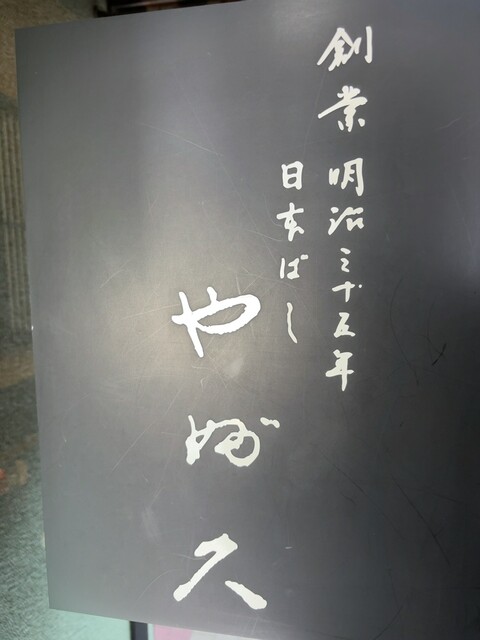 創業 明治三十五年
日本ばし
やぶ久